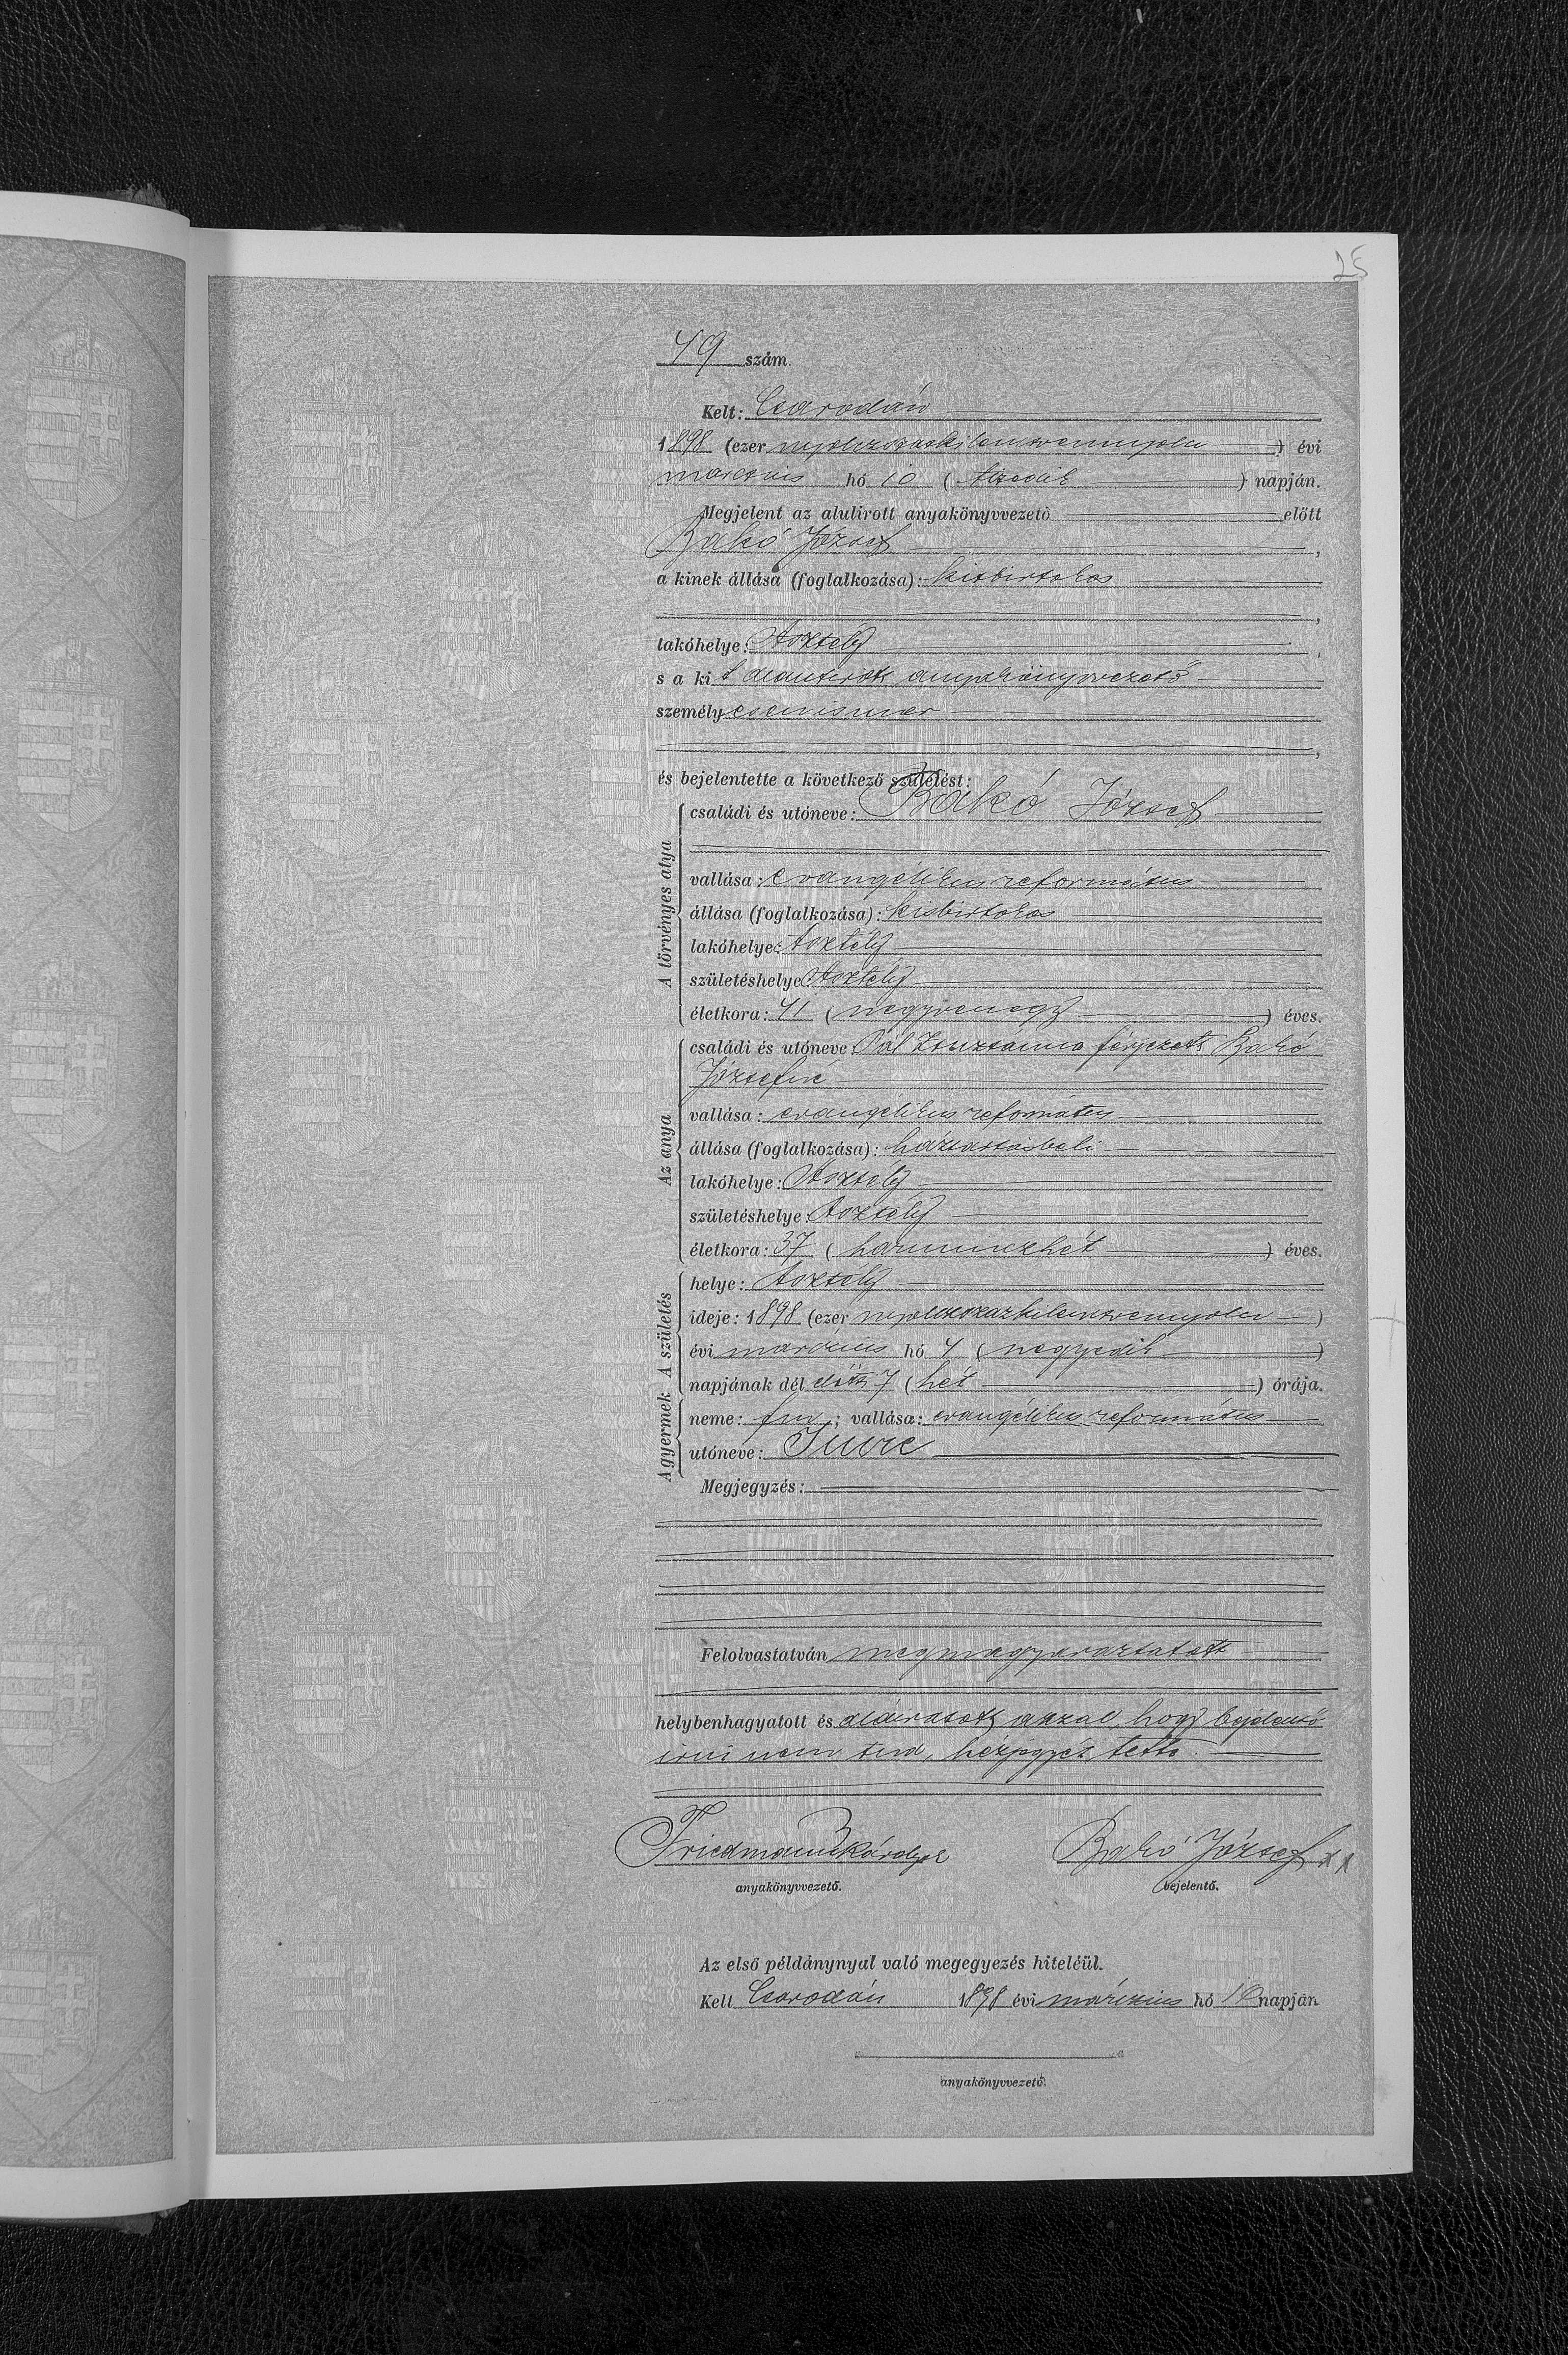 25
49 szám.
Kelt: Csarodán
1898 (ezer nyolczszázkilenczvennyolcz) évi
márczius hó 10 (tizedik) napján.
Megjelent az alulirott anyakönyvvezető előtt
Bakó József,
a kinek állása (foglalkozása): kisbirtokos
lakóhelye: Asztély,
s a ki t anyakönyvvezető
személyesen ismer
és bejelentette a következő születést:
A törvényes atya
családi és utóneve: Bakó József
vallása: evangélikus református
állása (foglalkozása): kisbirtokos
lakóhelye: Asztély
születéshelye: Asztély
életkora: 41 (negyvenegy) éves.
Az anya
családi és utóneve: Pál Zsuzsánna férjezett Bakó
Józsefné
vallása: evangelikus református
állása (foglalkozása): háztartásbeli
lakóhelye: Asztély
születéshelye: Asztély
életkora: 37 (harminczhét) éves.
A születés
helye: Asztély
ideje: 1898 (ezer nyolczszázkilenczvennyolcz)
évi márczius hó 4 (negyedik)
napjának dél előtt 7 (hét) órája.
A gyermek
neme: fiu; vallása: evangélikus református
utóneve: Imre
Megjegyzés:
Felolvastatván megmagyaráztatott
helybenhagyatott és aláiratott azzal, hogy bejelentő
irni nem tud, kézjegyét tette.
Friedmann Károly
Bakó József xx
anyakönyvvezető.
bejelentő.
Az első példánynyal való megegyezés hiteléül.
Kelt Csarodán 1898 évi márczius hó 10 napján
anyakönyvvezető.